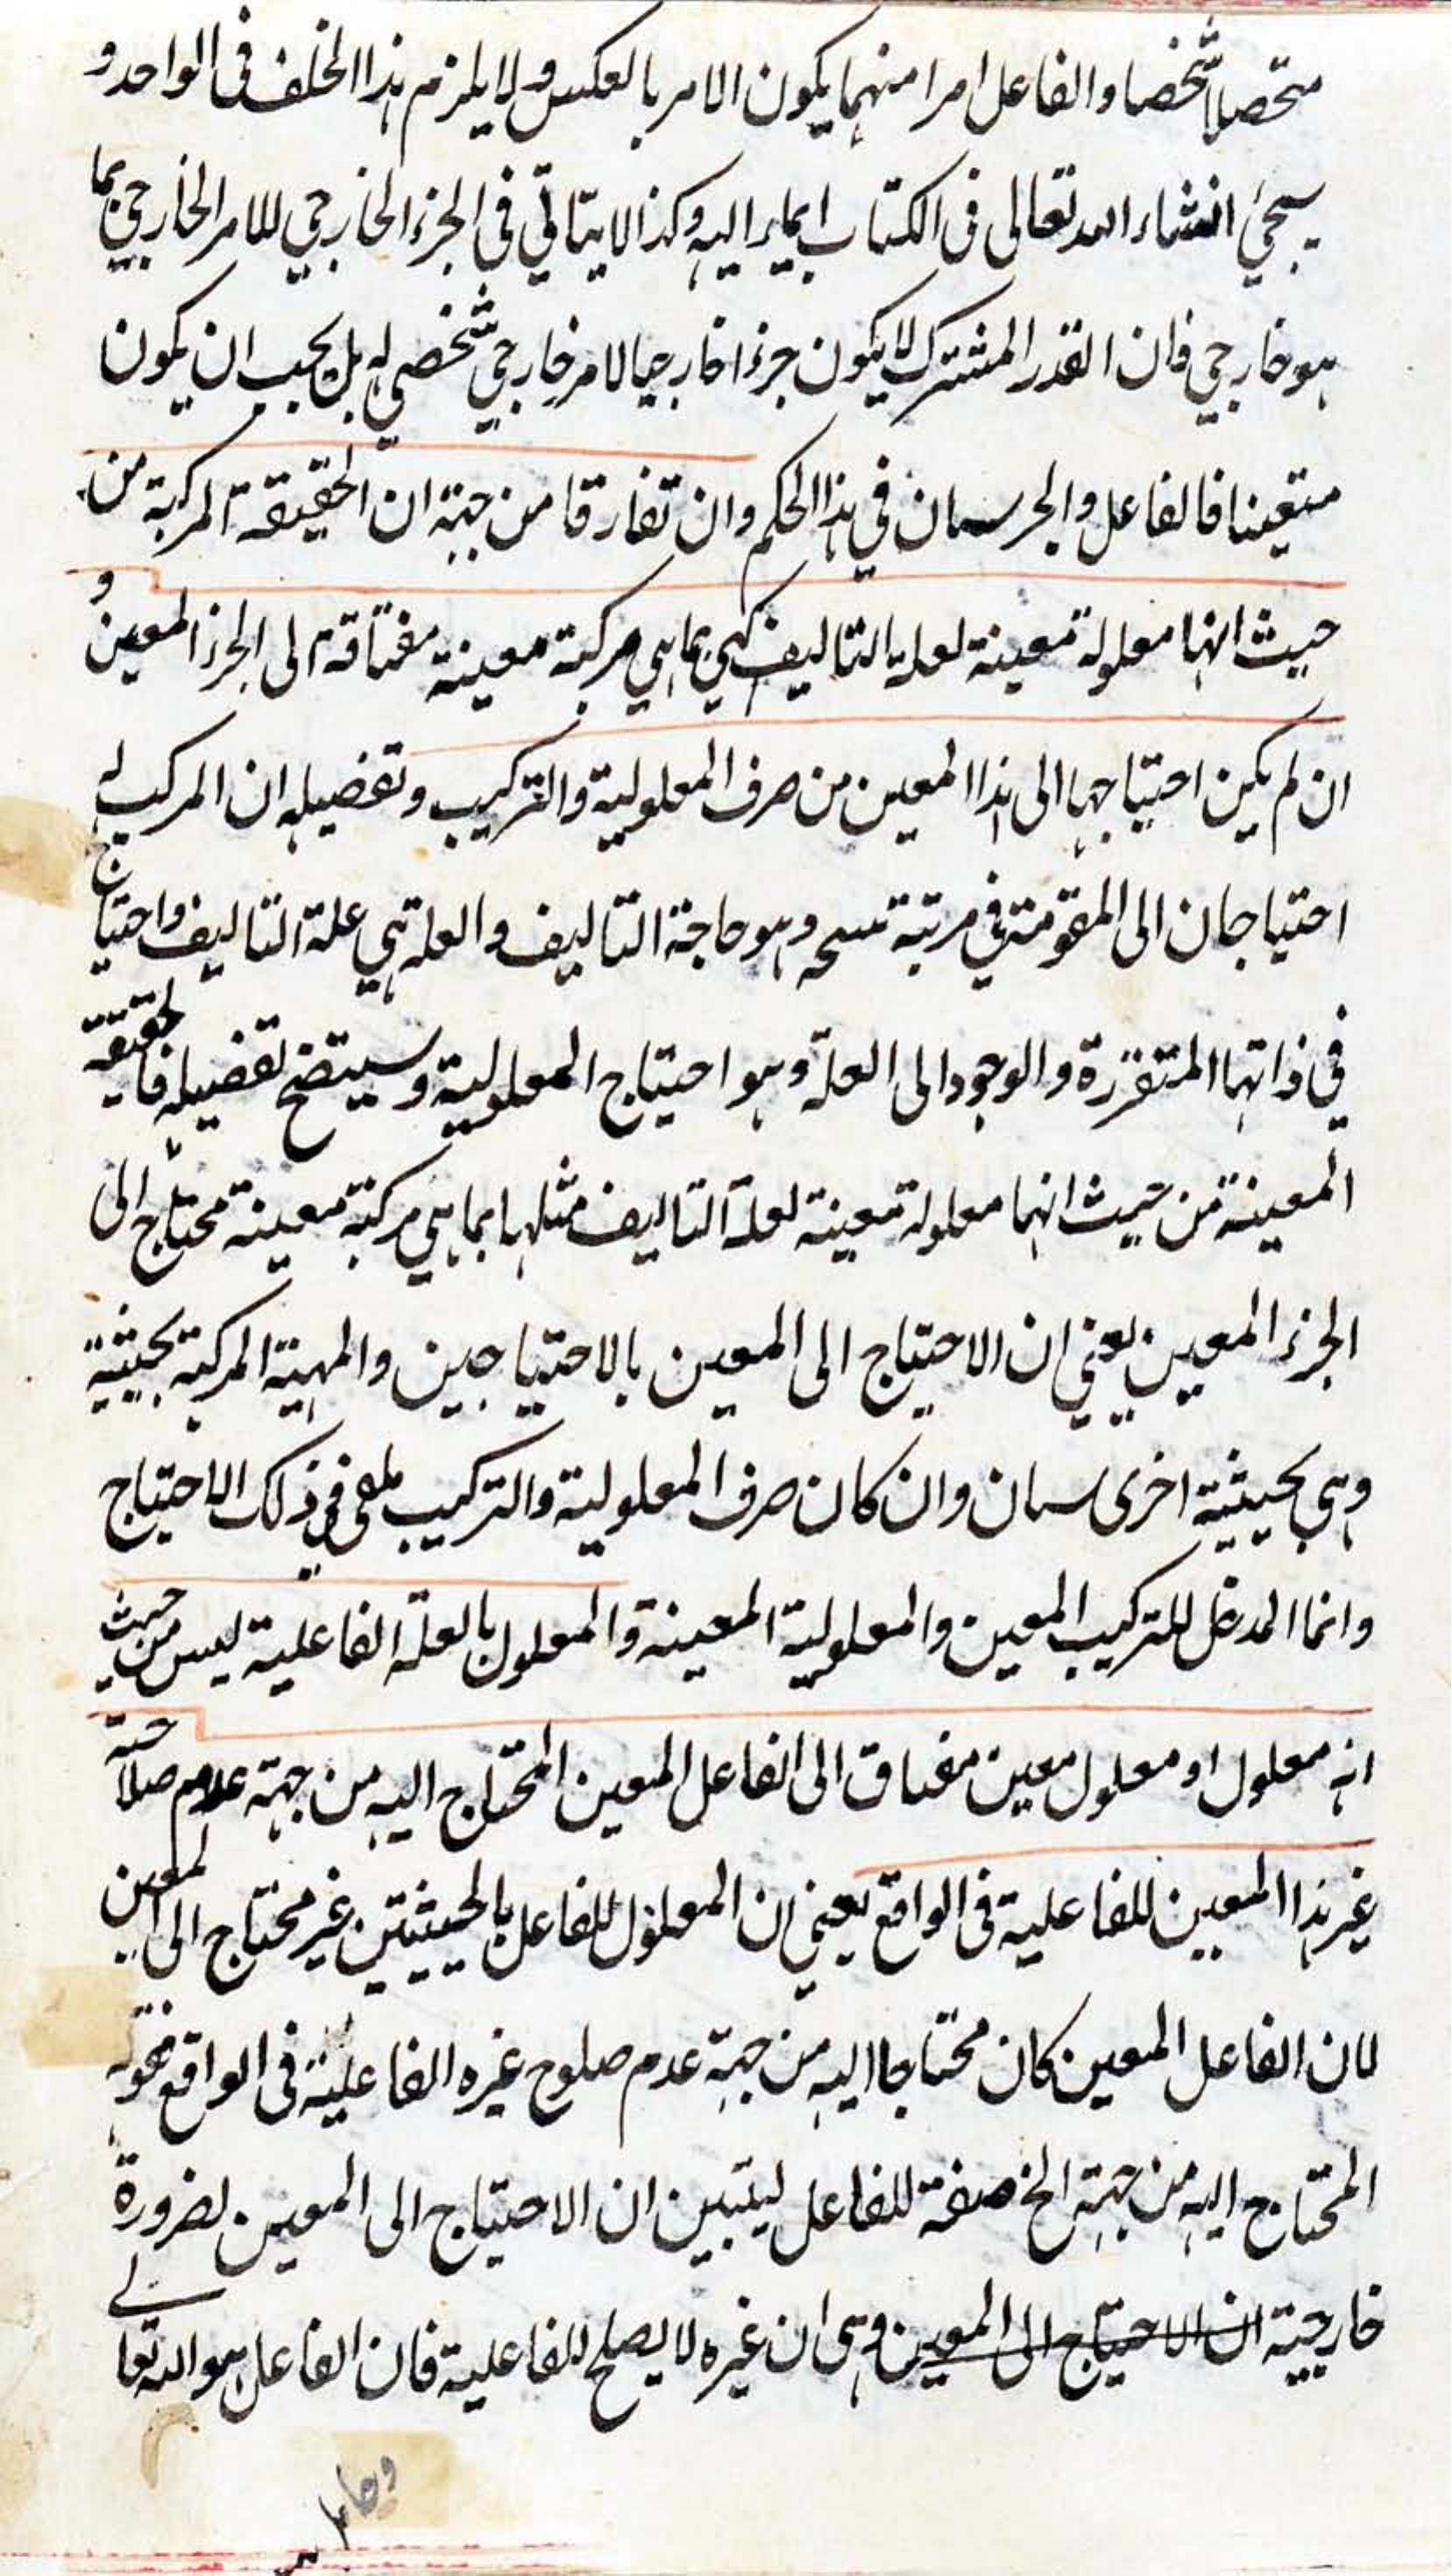 متحصلا شخصا والفاعل امرا منهما يكون الامر بالعكس ولا يلزم هذا الخلف فى الواحد و
سيجئ انشاء الله تعالى فى الكتاب ايماء اليه وكذا لا يتاتي في الجزء الخارجي للامر الخارجي بما
هو خارجي فان القدر المشترك لا يكون جزءا خارجيا لامر خارجي شخصي له بل يجب ان يكون
متعينا فالفاعل والجزء سيان في هذا الحكم وان تفارقا من جهة ان الحقيقة المركبة من
حيث انها معلولة معينة لعلة التاليف كهي بما هي مركبة معينة مفتاقة الى الجزء المعين و
ان لم يكن احتياجها الى هذا المعين من صرف المعلولية والتركيب وتفصيله ان المركب له
احتياجان الى المقومة في مرتبة وهو حاجة التاليف والعلة هي علة التاليف واحتياج
في ذاتها المتقررة والوجود الى العلة وهو احتياج المعلولية وسيتضح تفصيله فالحقيقة
المعينة من حيث انها معلولة معينة لعلة التاليف مثلها بما هي مركبة معينة محتاج الى
الجزء المعين يعني ان الاحتياج الى المعين بالاحتياجين والمهية المركبة بحيثية
وهي بحيثية اخرى سيان وان كان صرف المعلولية والتركيب ملغى في ذلك الاحتياج
وانما المدخل للتركيب المعين والمعلولية المعينة والمعلول بالعلة الفاعلية ليس من حيث
انه معلول او معلول معين مفتاق الى الفاعل المعين المحتاج اليه من جهة عدم صلاحية
غير هذا المعين للفاعلية فى الواقع يعني ان المعلول للفاعل بالحيثيتين غير محتاج الى المعين
لان الفاعل المعين كان محتاجا اليه من جهة عدم صلوح غيره الفاعلية فى الواقع فقوله
المحتاج اليه من جهة الخ صفة للفاعل ليتبين ان الاحتياج الى المعين لضرورة
خارجية ان الاحتياج الى المعين وهى ان غيره لا يصلح للفاعلية فان الفاعل هو الله تعالى